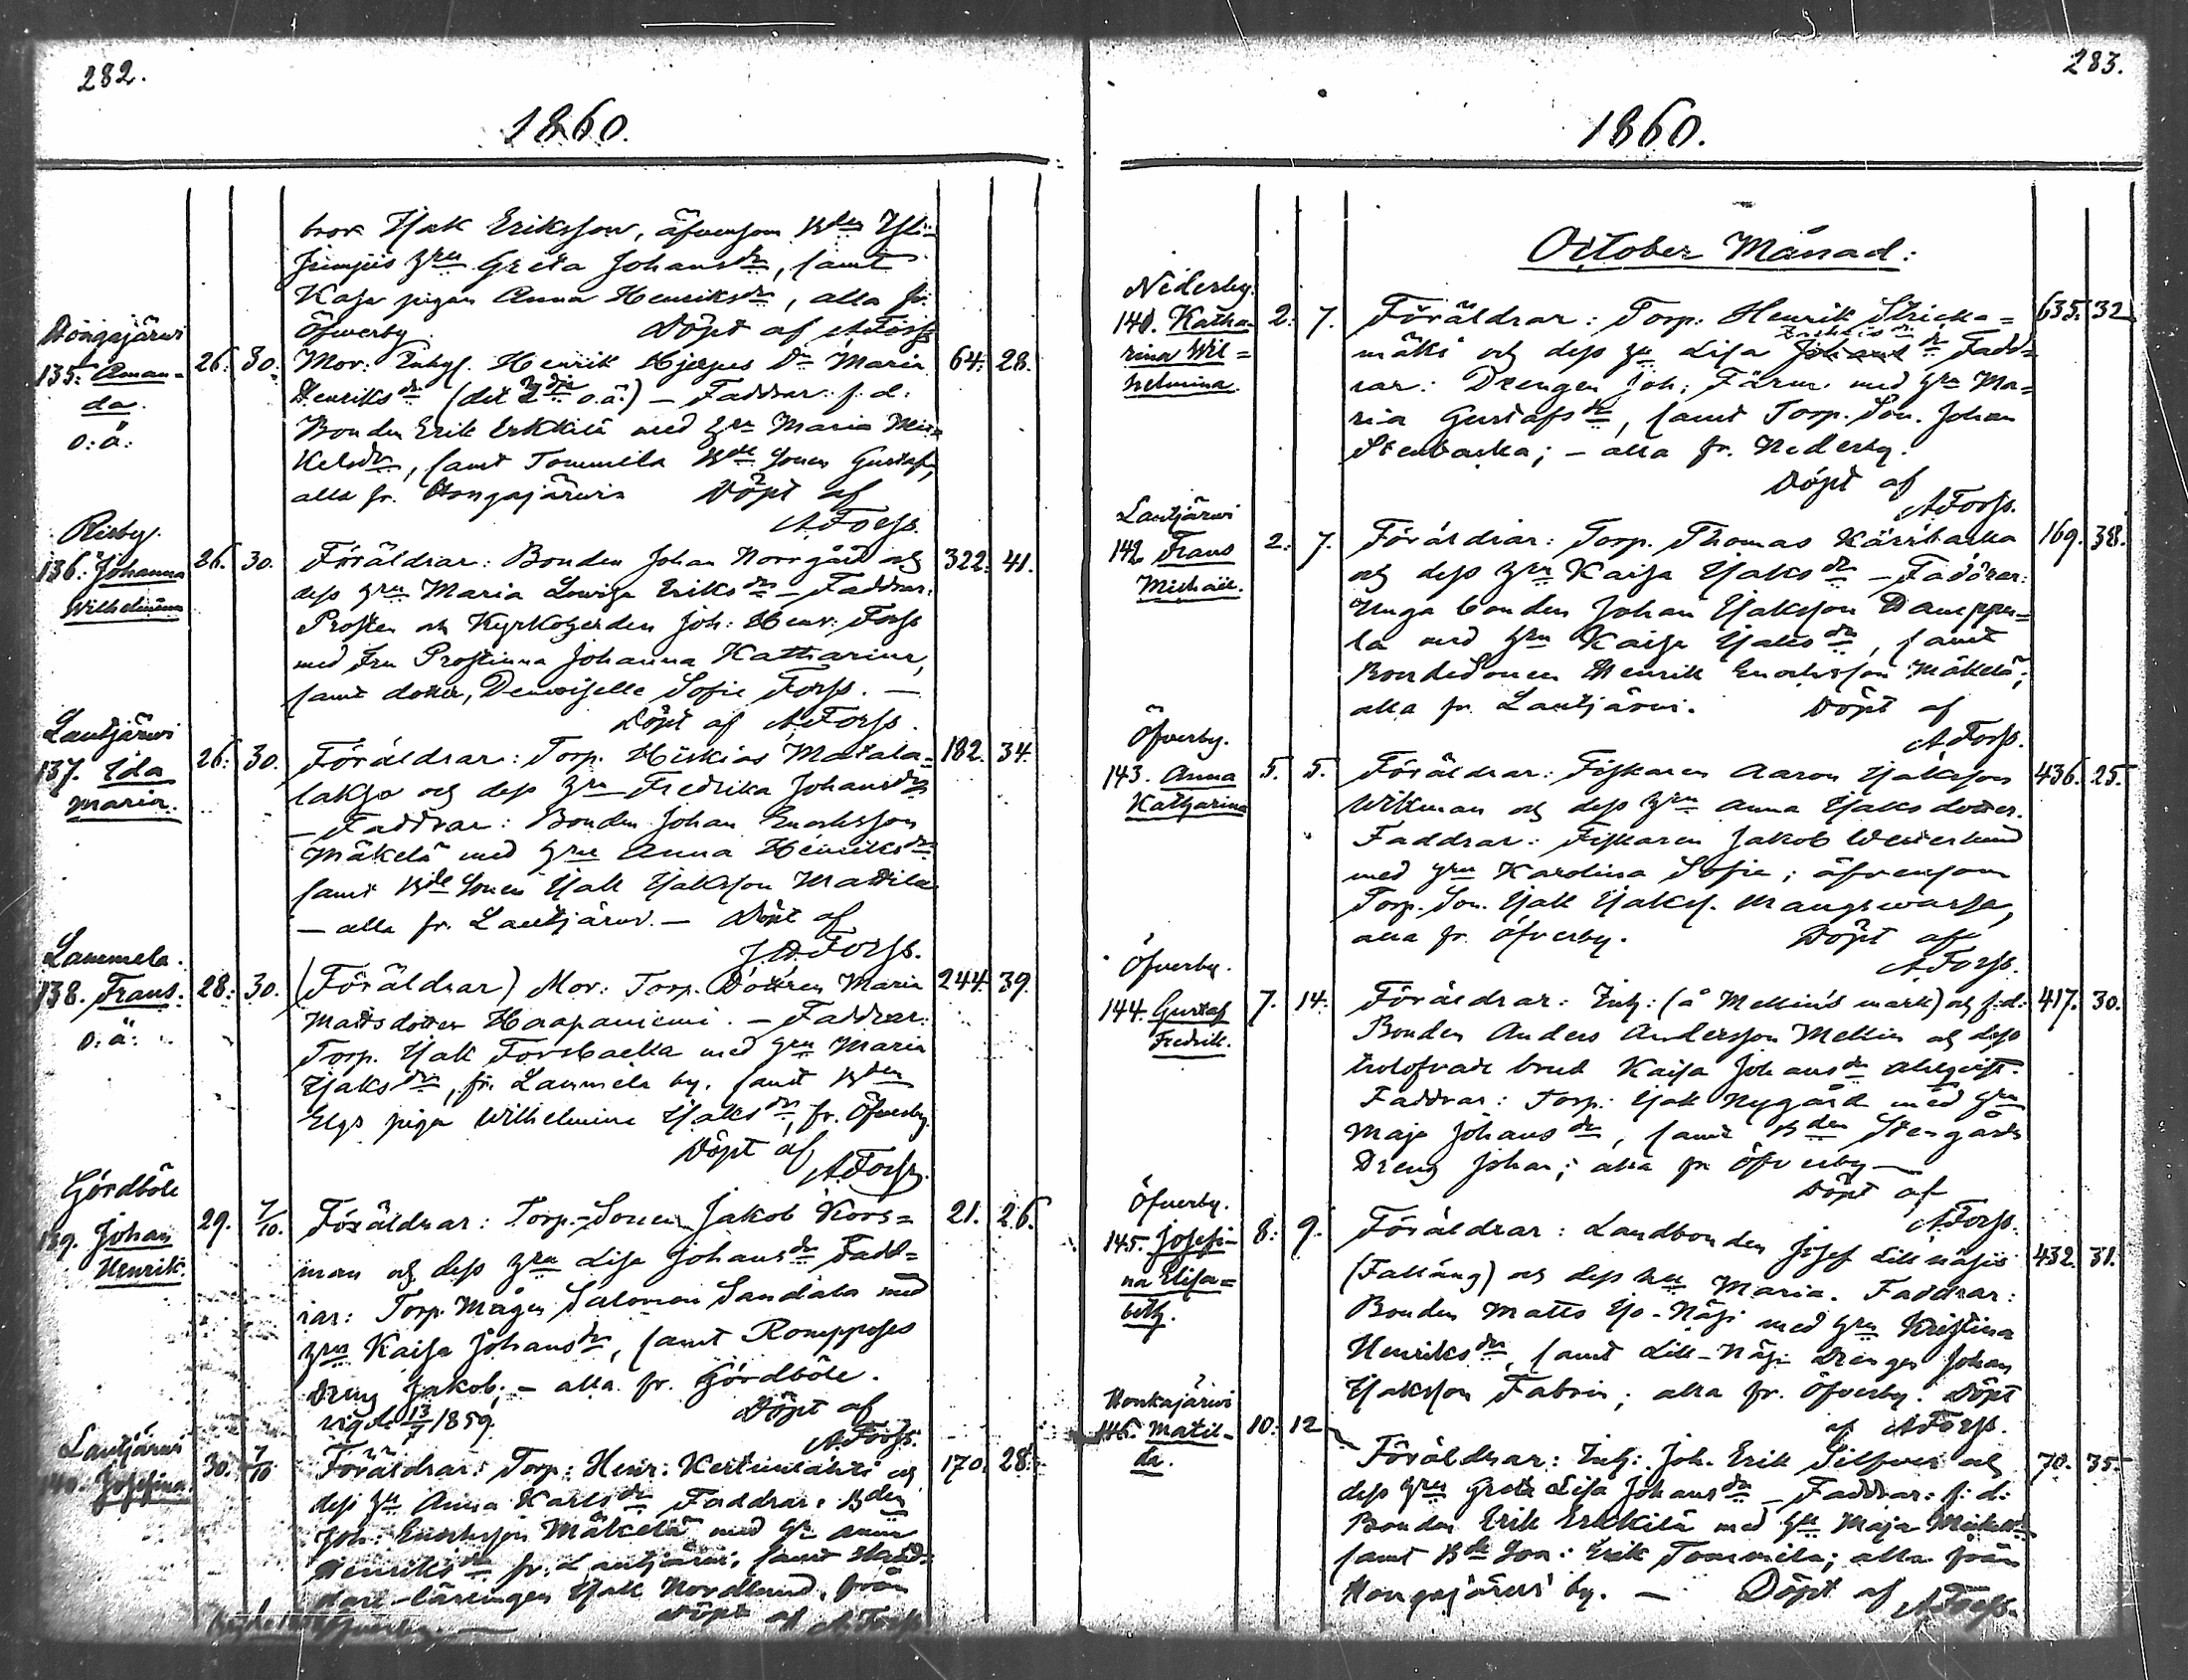 282.
1860.
bror Isak Eriksson, äfvensom Bden
hru Greta Johansdr, samt
Kaja pigan Anna Henriksdr, alla fr.
Öfverby. Döpt af A Forss
Hongajärwi
135. Aman=
da.
o: ä:
26. 30. Mor: Inhys. Henrik Hjerpes Dr Maria 64. 28.
Henriksdr (det 2dje o.ä.) — Faddrar: f. d.
Bonden Erik Erkkilä med hru Maria Mic=
kelsdr, samt Tommila Bde Sonen Gustaf,
alla fr. Hongajärwi Döpt af
A Forss.
Risby.
136: Johanna
Wilhelmina
26. 30. Föräldrar: Bonden Johan Norrgård och 322. 41.
dess hru Maria Lovisa Eriksdr — Faddrar:
Prosten och Kyrkoherden Joh: Henr: Forss
med Fru Prostinna Johanna Katharina,
samt dotter, Demoiselle Sofie Forss. —
Döpt af A Forss.
Lautjärwi
137. Ida
Maria.
26: 30. Föräldrar: Torp. Hiskias Matala= 182. 34.
lakso och dess hru Fredrika Johansdr
— Faddrar: Bonden Johan Enochsson
Mäkelä med hru Anna Henriksdr
samt Bde Sonen Isak Isaksson Mattila
— alla fr. Lautjärwi. — Döpt af
J. H. Forss.
Lammela.
138. Frans.
o: ä:
28: 30. (Föräldrar) Mor: Torp. Dottren Maria 244. 39.
Mattsdotter Haapaniemi. — Faddrar:
Torp. Isak Forsbacka med hru Maria
Isaksdr, fr. Lammela by, samt Bden
Elgs piga Wilhelmina Isaksdr, fr. Öfverby
Döpt af
A Forss.
Gördböle
139. Johan
Henrik.
29. 7/10. Föräldrar: Torp.-Sonen Jakob Kors= 21. 26.
man och dess hru Lisa Johansdr Fadd=
rar: Torp. Mågen Salomon Sandåla med
hru Kaisa Johansdr, samt Romppases
Dreng Jakob; — alla fr. Gördböle.
vigde 13/7 1859. Döpt af
A Forss.
Lautjärwi
140. Josefina.
30. 7/10 Föräldrar: Torp: Henr: Kertunlähti och 170. 28.
dess hru Anna Karlsdr Faddrar: Bden
Joh: Enochsson Mäkelä med hru Anna
Henriksdr fr. Lautjärwi, samt
-läringen Isak Nordlund, från
Öfverby. — Döpt af A Forss
283.
1860.
October Månad:
Nederby.
141. Katha=
rina Wil=
helmina.
2. 7. Föräldrar: Torp: Henrik Stricka= 635. 32.
mäki och dess hru Lisa Johansdr Fadd=
rar: Drengen Joh: Färm med hru Ma=
ria Gustafsdr, samt Torp. Son. Johan
Stenbacka; — alla fr. Nederby.
Döpt af
A Forss.
Lautjärwi
142. Frans
Michaël.
2. 7. Föräldrar: Torp. Thomas Kärrbacka 169. 38.
och dess hru Kaisa Isaksdr — Faddrar:
Unga bonden Johan Isaksson Damppu=
la med hru Kaisa Isaksdr, samt
Bondesonen Henrik Enochsson Mäkelä;
alla fr. Lautjärwi. Döpt af
A Forss.
Öfverby.
143. Anna
Katharina
5. 5. Föräldrar: Fiskaren Aaron Isaksson 436. 25.
Wikman och dess hru Anna Isaksdotter.
Faddrar: Fiskaren Jakob Westerlund
med hru Karolina Sofia; äfvensom
Torp. Son. Isak Isakss. Mangswarsa,
alla fr. Öfverby. Döpt af
A Forss.
Öfverby.
144. Gustaf
Fredrik.
7. 14. Föräldrar: Inh: (å Mellins mark) och f.d. 417. 30.
Bonden Anders Andersson Mellin och dess
trolofvade brud Kaisa Johansdr Ahlqvist.
Faddrar: Torp: Isak Nygård med hru
Maja Johansdr, samt Bden Stengårds
Dreng Johan; alla fr. Öfverby —
Döpt af
A Forss.
Öfverby.
145. Josefi=
na Elisa=
beth.
8. 9. Föräldrar: Landbonden Josef Lillnäsis 432. 31.
(Falläng) och dess hru Maria. Faddrar:
Bonden Matts Iso-Näsi med hru Kristina
Henriksdr, samt Lill-Näsi Drengen Johan
Isaksson Fabrin; alla fr. Öfverby. Döpt
af A Forss.
Honkajärwi
146. Matil=
da.
10. 12 Föräldrar: Inh: Joh. Erik Silfver och 70. 35.
dess hru Greta Lisa Johansdr — Faddrar: f: d:
Bonden Erik Erkkilä med hru Maja Mickelsdr
samt Bde Son: Erik Tommila; alla från
Hongajärwi by. — Döpt af A Forss.